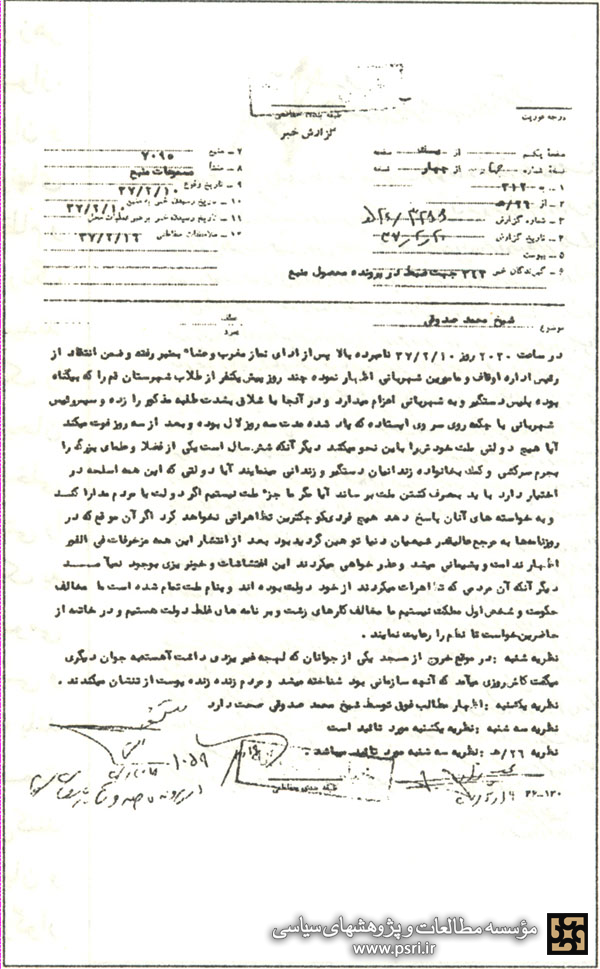 درجه فوریت
طبقه بندی حفاظتی
گزارش خبر
صفحه یکم از صفحه
نسخه شماره از چهار نسخه
۱ ـ به ۳۱۲
۲ ـ از ۲۶/ه
۳ ـ شماره گزارش
۴ ـ تاریخ گزارش
۵ ـ پیوست
۶ ـ گیرندگان خبر ۳۶۲ جهت ضبط در پرونده محصول منبع
۷ ـ منبع ۷۰۹۵
۸ ـ منشأ مسموعات منبع
۹ ـ تاریخ وقوع ۳۷/۲/۱۰
۱۰ ـ تاریخ رسیدن خبر به منبع ۳۷/۲/۱۰
۱۱ ـ تاریخ رسیدن خبر به رهبر عملیات محل
۱۲ ـ ملاحظات حفاظتی ۳۷/۲/۱۶
موضوع شیخ محمد صدوقی
در ساعت ۲۰۳۰ روز ۳۷/۲/۱۰ نامبرده بالا پس از ادای نماز مغرب و عشا٬ بمنبر رفته و ضمن انتقاد از
رئیس اداره اوقاف و مامورین شهربانی اظهار نموده چند روز پیش یکنفر از طلاب شهرستان قم را که بیگناه
بوده پلیس دستگیر و به شهربانی اعزام میدارد و در آنجا با شلاق بشدت طلبه مذکور را زده و سپس رئیس
شهربانی با چکمه روی سر وی ایستاده که یاد شده مدت سه روز لال بوده و بعد از سه روز فوت میکند
آیا هیچ دولتی ملت خودش را باین نحو میکشد دیگر آنکه شش سال است یکی از فضلا و علمای بزرگ را
بجرم سرکشی و کمک بخانواده زندانیان دستگیر و زندانی مینمایند آیا دولتی که این همه اسلحه در
اختیار دارد با ید بمصرف کشتن ملت برساند آیا مگر ما جز٬ ملت نیستیم اگر دولت با مردم مدارا کند
و به خواسته های آنان پاسخ دهد هیچ فردی کوچکترین تظاهراتی نخواهد کرد اگر آن موقع که در
روزنامه‌ها به مرجع عالیقدر شیعیان دنیا توهین گردید بود بعد از انتشار این همه مزخرفات فی الفور
اظهار ندامت و پشیمانی میشد و عذر خواهی میکردند این اغتشاشات و خونریزی بوجود نمیآمد
دیگر آنکه آن مردمی که تظاهرات میکردند از خود دولت بوده اند و بنام ملت تمام شده است ما مخالف
حکومت و شخص اول مملکت نیستیم ما مخالف کارهای زشت و برنامه های غلط دولت هستیم و در خاتمه از
حاضرین خواست تا نظم را رعایت نمایند .
نظریه شنبه : در موقع خروج از مسجد یکی از جوانان که لهجه غیر یزدی داشت آهسته به جوان دیگری
میگفت کاش روزی میآمد که آنچه سازمانی بود شناخته میشد و مردم زنده زنده پوست از تنشان میکندند .
نظریه یکشنبه : اظهار مطالب فوق توسط شیخ محمد صدوقی صحت دارد
نظریه سه شنبه : نظریه یکشنبه مورد تائید است
نظریه ۲۶/ه : نظریه سه شنبه مورد تائید میباشد
طبقه بندی حفاظتی
۳۶-۱۳۰
مؤسسه مطالعات و پژوهشهای سیاسی
www.psri.ir